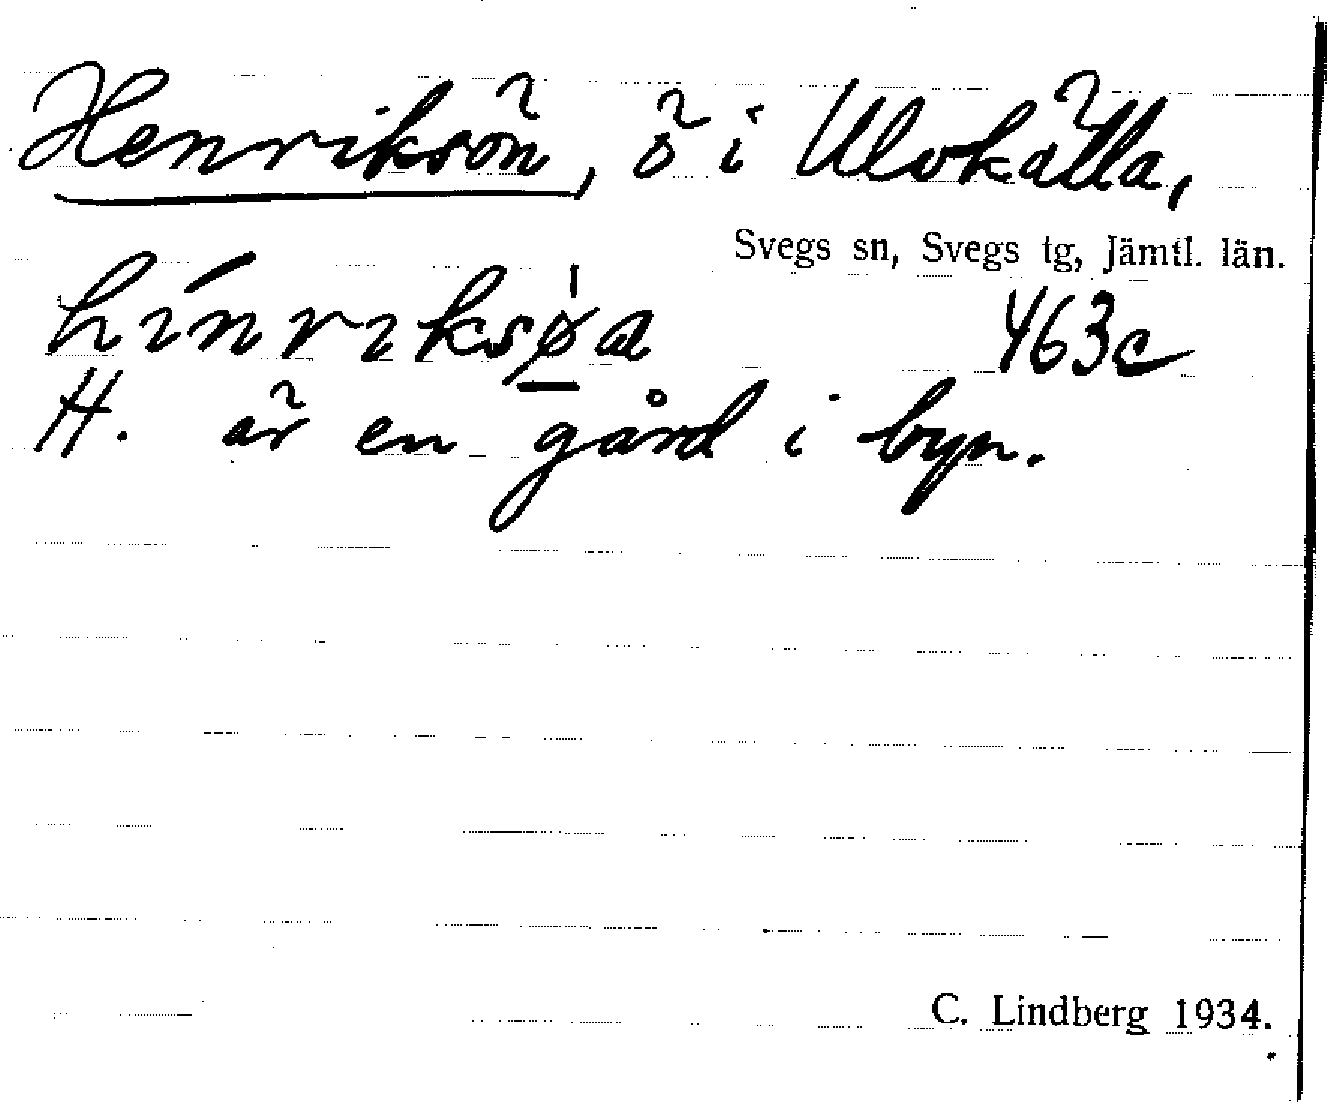 Henriksön, ö i Ulvkälla,
Svegs sn, Svegs tg, Jämtl. län.
hínriksø̱a 463c
H. är en gård i byn.
C. Lindberg 1934.